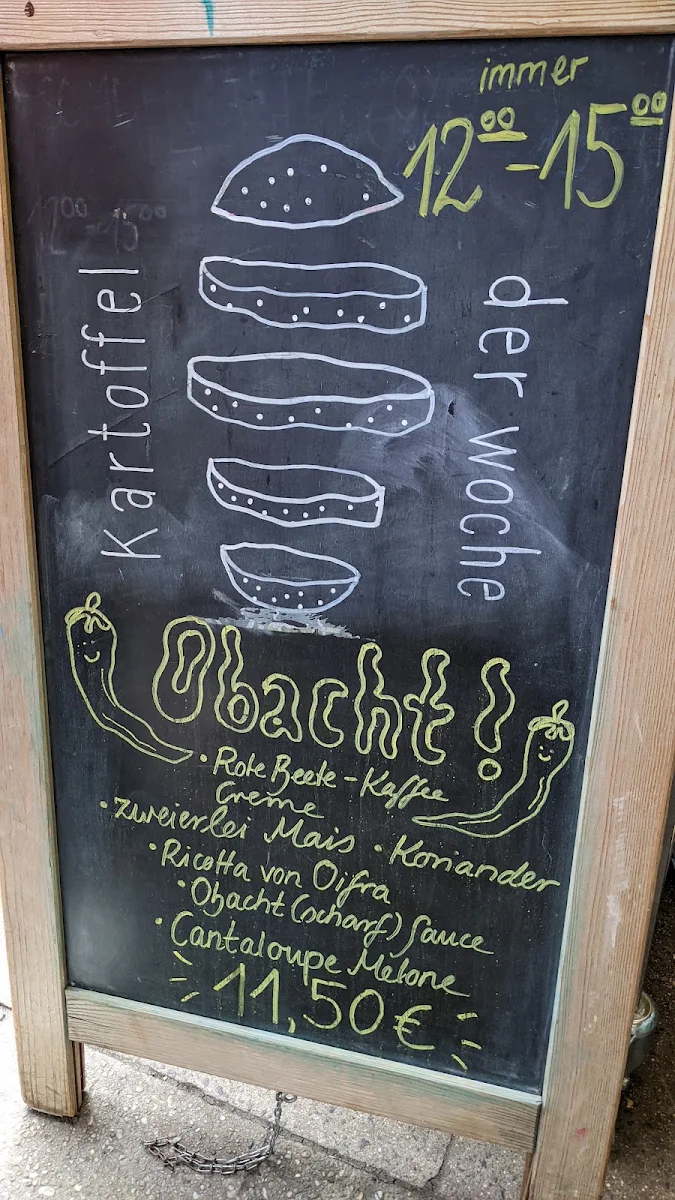 immer
12⁰⁰-15⁰⁰
Kartoffel
der woche
Obacht!
· Rote Beete - Kaffee
Creme
· zweierlei Mais · Koriander
· Ricotta von Oifra
· Obacht (scharf) Sauce
· Cantaloupe Melone
11,50 €